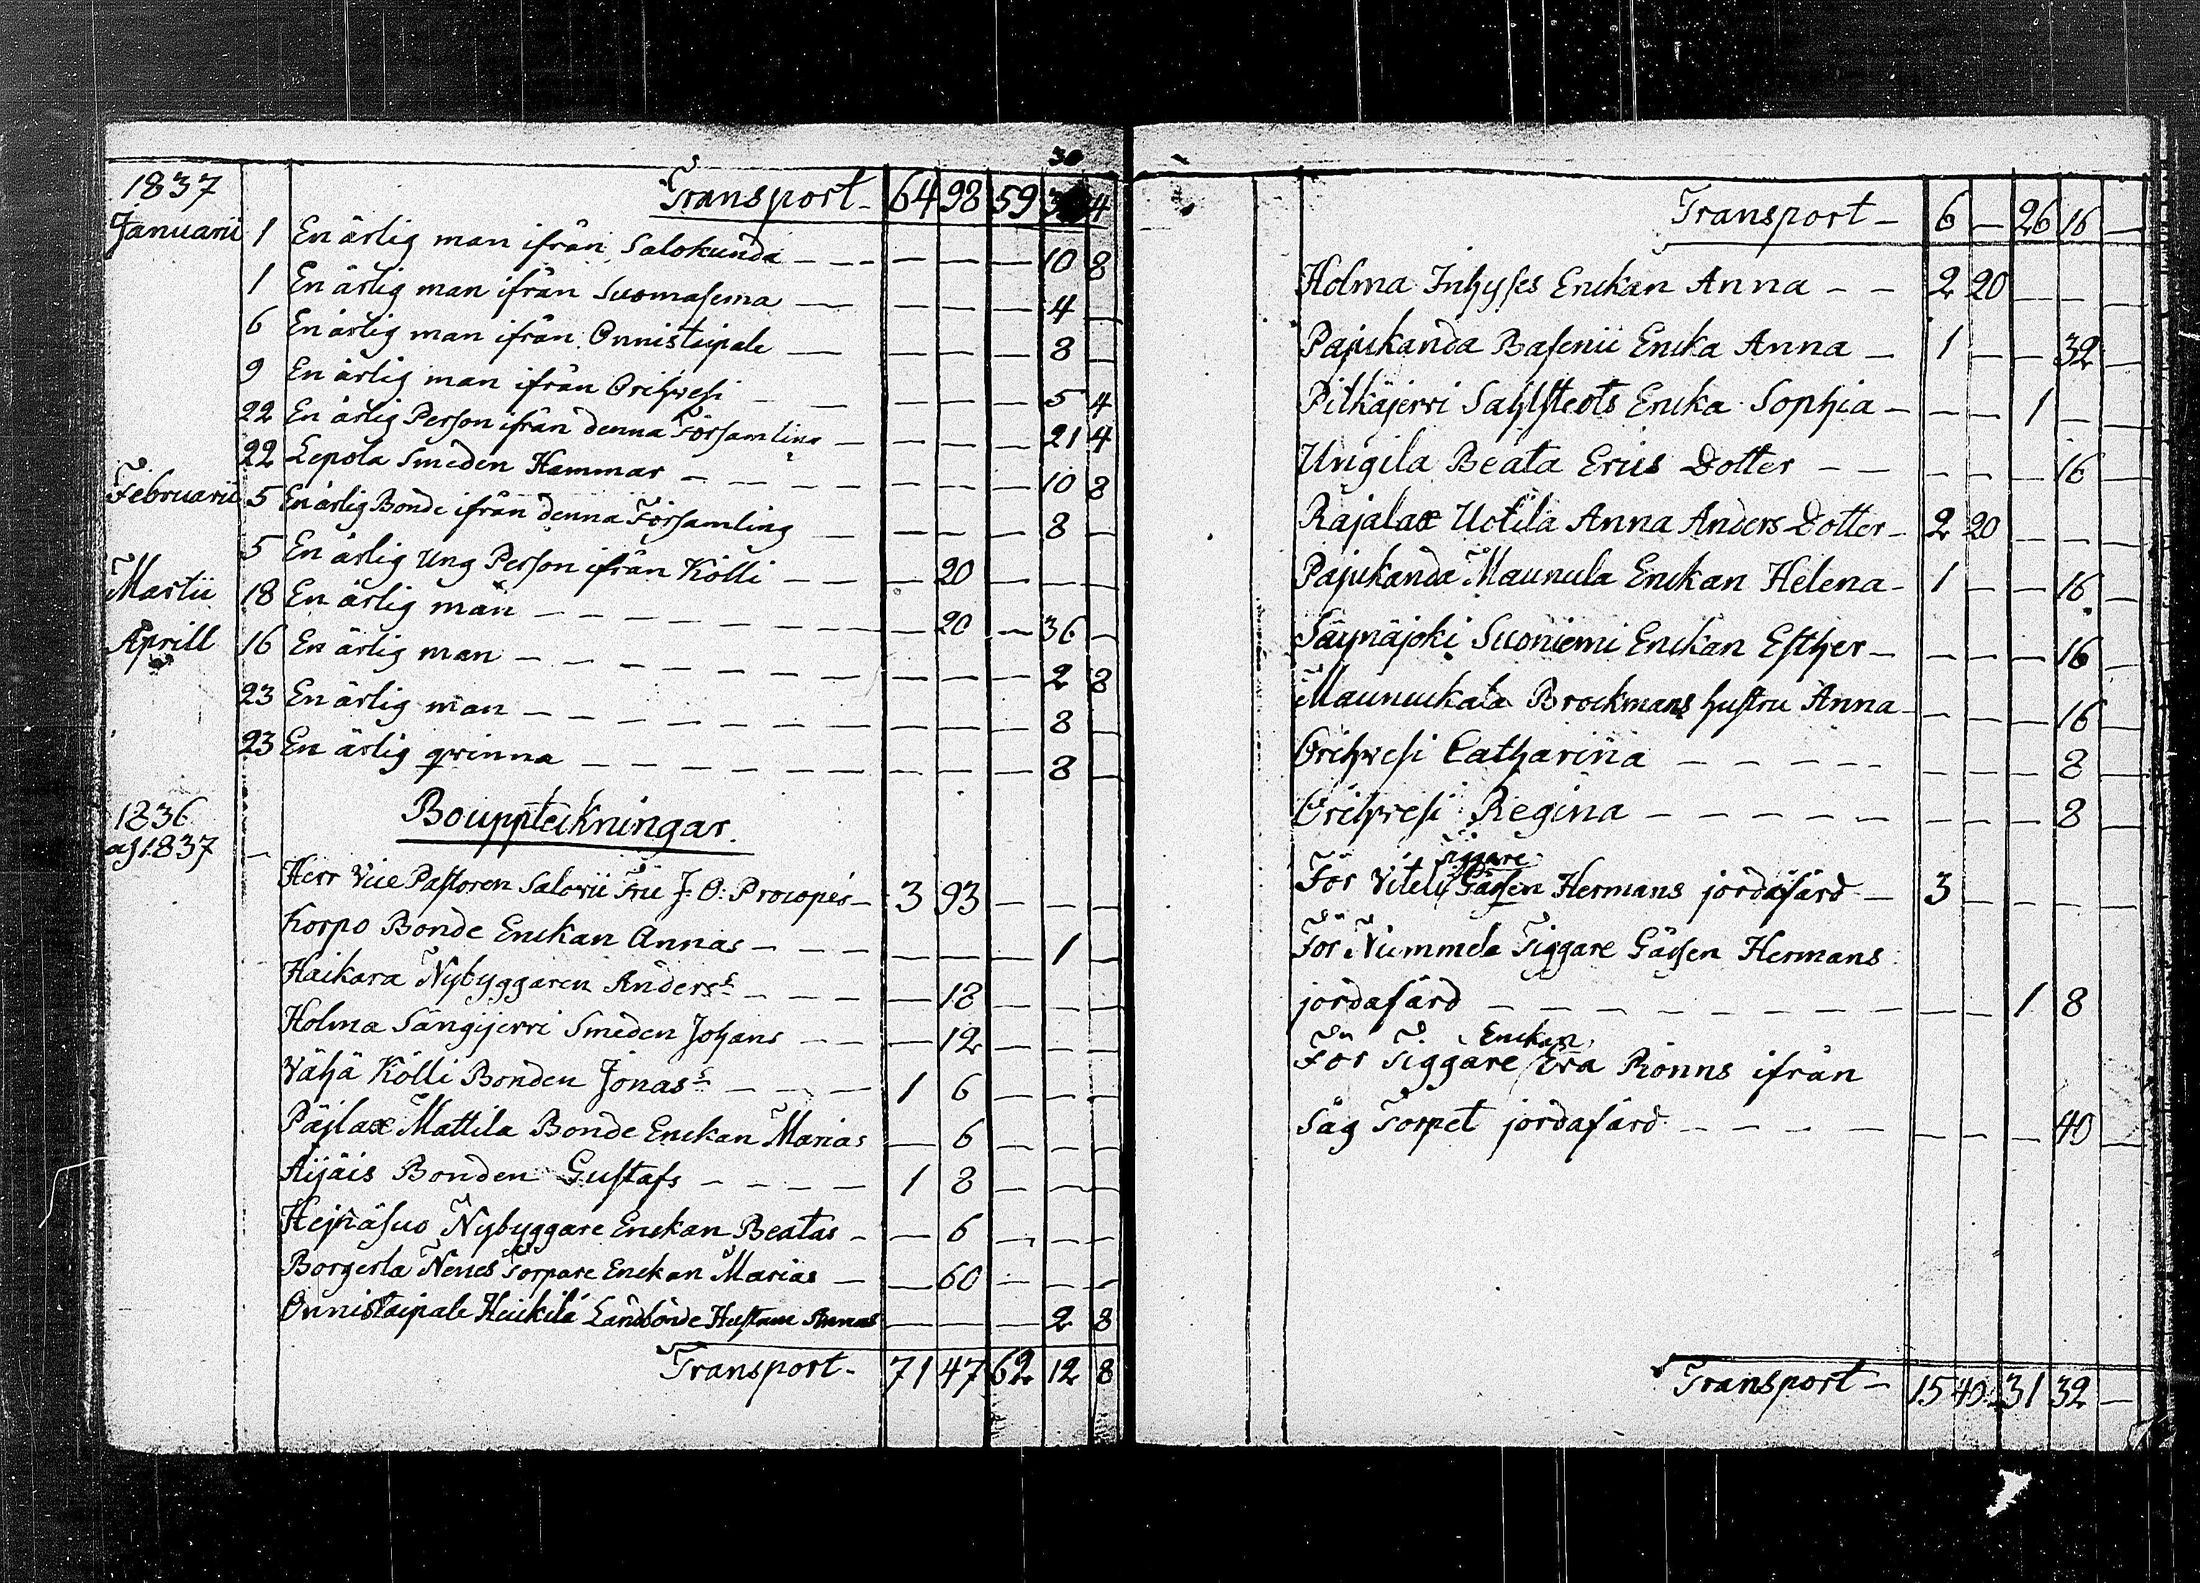 30
1837 Transport - 64 98 59 30 4
Januarii 1 En ärlig man ifrån Salokunda - - - - - - 10 8
1 En ärlig man ifrån Suomasema - - - - 4 -
6 En ärlig man ifrån Onnistaipale - - - - 8 -
9 En ärlig man ifrån Orihwesi - - - - - 5 4
22 En ärlig Person ifrån denna Församling - - - - 21 4
22 Lepola Smeden Hammar - - - - - - - 10 8
Februarii 5 En ärlig Bonde ifrån denna Församling - - - - 8 -
5 En ärlig Ung Person ifrån Kölli - - - 20 - - -
Martii 18 En ärlig man - - - - - - - 20 - 36 -
Aprill 16 En ärlig man - - - - - - - - - - 2 8
23 En ärlig man - - - - - - - - - - 8 -
23 En ärlig qwinna - - - - - - - - - 8 -
1836 Bouppteckningar.
af 1837 -
Herr Vice Pastoren Salovii Fru J. O. Procopés - 3 93 - - -
Korpo Bonde Enckan Annas - - - - - - 1 -
Haikara Nybyggaren Anders - - - - 18 - - -
Holma Sängijerri Smeden Johans - - - 12 - - -
Vähä Kölli Bonden Jonas - - - 1 6 - - -
Päjlax Mattila Bonde Enckan Marias - 6 - - -
Äijäis Bonden Gustafs - - - - 1 8 - - -
Hejnäsuo Nybyggare Enckan Beatas - - 6 - - -
Borgerla Nenes Torpare Enckan Marias - - 60 - - -
Onnistaipale Heickilä Landbonde Hustrun Annas - - - 2 8
Transport - 71 47 62 12 8
Transport - 6 - 26 16 -
Holma Inhyses Enckan Anna - - 2 20 - - -
Pajukanda Basenii Encka Anna - 1 - - 32 -
Pitkäjerri Sahlsteots Encka Sophia - - - 1 - -
Ungila Beata Erics Dotter - - - - - 16 -
Rajalax Uotila Anna Anders Dotter - 2 20 - - -
Pajukanda Maunula Enckan Helena - 1 - - 16 -
Säynäjoki Suoniemi Enckan Esther - - - - 16 -
Maunuckala Brockmans hustru Anna - - - - 16 -
Orihwesi Catharina - - - - - - - - 8 -
Orihwesi Regina - - - - - - - - 8 -
Tiggare
För Gåssen Hermans jordafärd - 3 - - - -
För Nummela Tiggare Gåssen Hermans
jordafärd - - - - - - - - - - 1 8
Enckan
För Tiggare Eva Rönns ifrån
Såg Torpet jordafärd - - - - - - - 40 -
Transport - 15 40 31 32 -